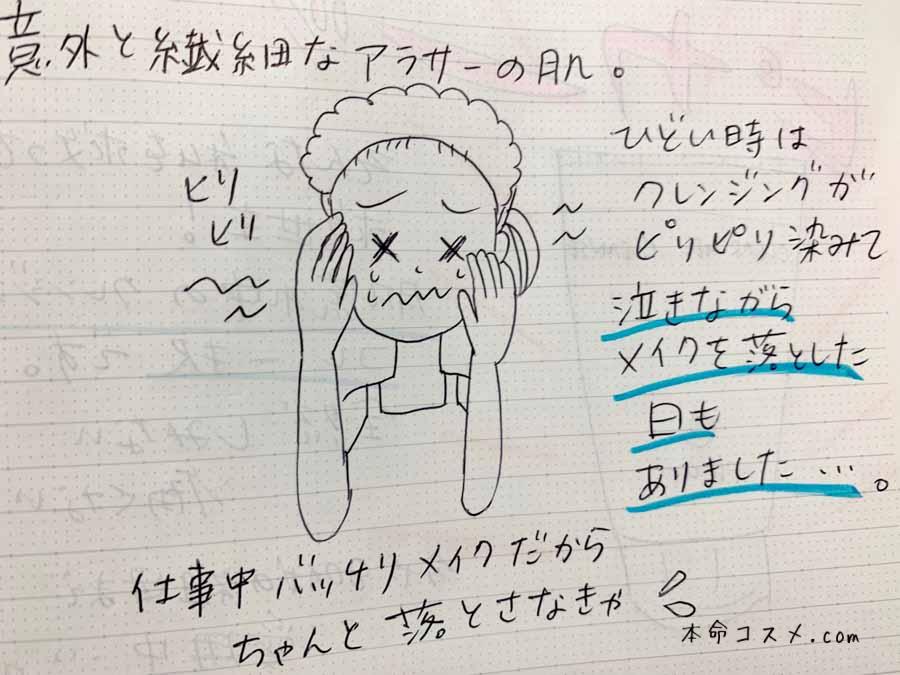 意外と繊細なアラサーの肌。
ヒリ
ヒリ
ひどい時は
クレンジングが
ピリピリ染みて
泣きながら
メイクを落とした
日も
ありました…。
仕事中バッチリメイクだから
ちゃんと落とさなきゃ
本命コスメ.com